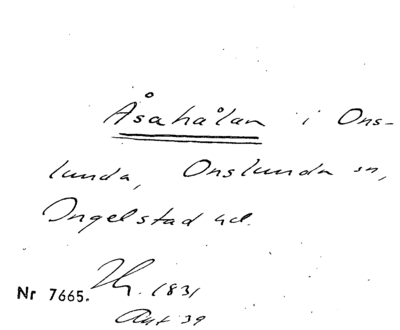 Åsahålan i Ons-
lunda, Onslunda sn,
Ingelstad hd.
Nr 7665. Th. 1831
Ant 39